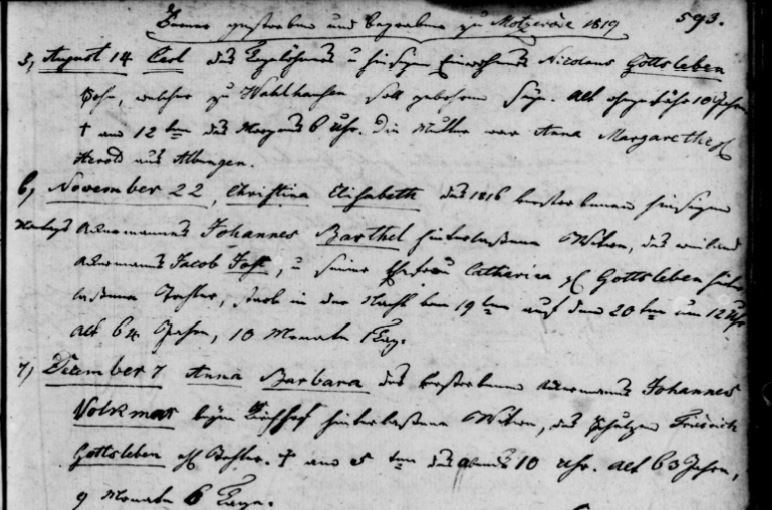 Ferner gestorben und begraben zu Motzerode 1819 593.
5, August 14 Carl des Tagelöhners u hiesigen Einwohners Nicolaus Gottsleben
Sohn, welcher zu Wahlhausen soll gebohren seyn. alt ohngefähr 10 Jahre,
† am 12ten des Morgens 6 Uhr. Die Mutter war Anna Margaretha
Herold aus Albungen.
6, November 22, Christina Elisabeth des 1816 verstorbenen hiesigen
Ackermanns Johannes Barthel hinterlaßene Witwe, des weiland
Ackermanns Jacob Jost, u seiner Ehefrau Catharina Gottsleben hinter
laßene Tochter, starb in der Nacht vom 19ten auf den 20ten um 12 Uhr
alt 64 Jahre, 10 Monate 1 Tag.
7, December 7 Anna Barbara des verstorbenen Ackermanns Johannes
Volkmar beym Kirchhof hinterlaßene Witwe, des Schulzen Friedrich
Gottsleben Tochter. † am 5ten des abends 10 Uhr. alt 63 Jahre,
9 Monate 6 Tage.